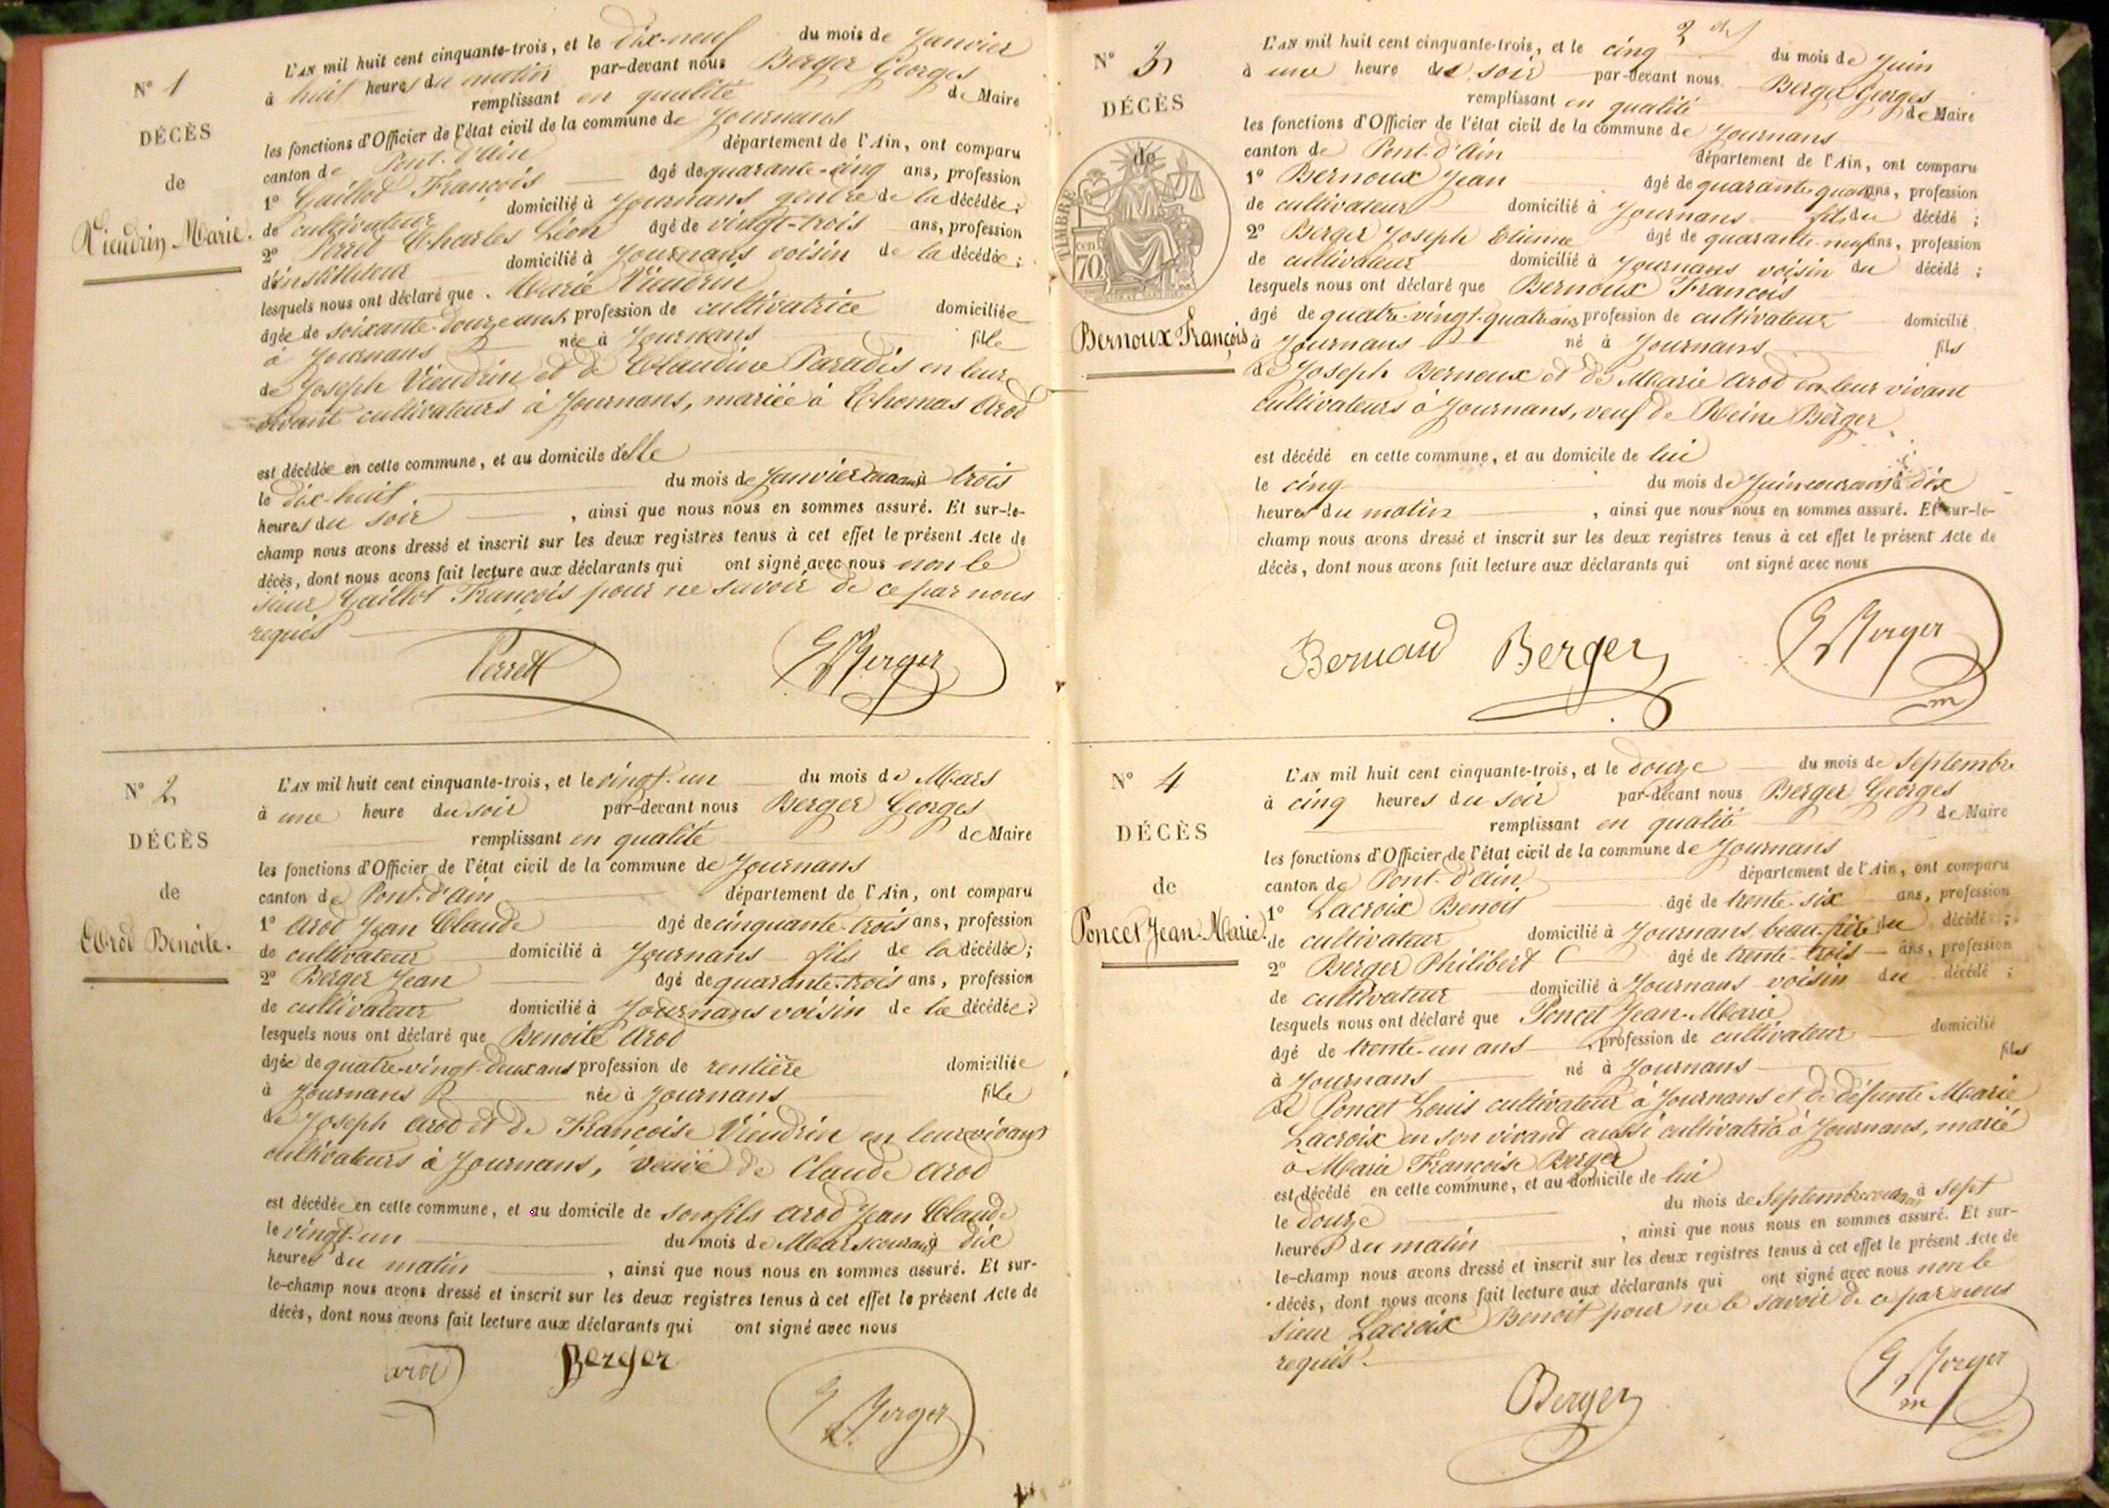 N° 1
DÉCÈS
de
Viendrin Marie.
L'AN mil huit cent cinquante-trois, et le dix-neuf du mois de Janvier
à huit heures du matin par-devant nous Berger Georges
remplissant en qualité de Maire
les fonctions d'Officier de l'état civil de la commune de Journans
canton de Pont-d'Ain département de l'Ain, ont comparu
1° Gaillot François âgé de quarante-cinq ans, profession
de cultivateur domicilié à Journans gendre de la décédée;
2° Perret Charles Léon âgé de vingt-trois ans, profession
d'instituteur domicilié à Journans voisin de la décédée;
lesquels nous ont déclaré que Marie Viendrin
âgée de soixante-douze ans, profession de cultivatrice domiciliée
à Journans née à Journans fille
de Joseph Viendrin et de Claudine Paradis en leur
vivant cultivateurs à Journans, mariée à Thomas Arod
est décédée en cette commune, et au domicile d'elle
le dix-huit du mois de Janvier courant à trois
heures du soir, ainsi que nous nous en sommes assuré. Et sur-le-
champ nous avons dressé et inscrit sur les deux registres tenus à cet effet le présent Acte de
décès, dont nous avons fait lecture aux déclarants qui ont signé avec nous non le
sieur Gaillot François pour ne savoir de ce par nous
requis
Perret G Berger
N° 2
DÉCÈS
de
Arod Benoite.
L'AN mil huit cent cinquante-trois, et le vingt-un du mois de Mars
à une heure du soir par-devant nous Berger Georges
remplissant en qualité de Maire
les fonctions d'Officier de l'état civil de la commune de Journans
canton de Pont-d'Ain département de l'Ain, ont comparu
1° Arod Jean Claude âgé de cinquante-trois ans, profession
de cultivateur domicilié à Journans fils de la décédée;
2° Berger Jean âgé de quarante-trois ans, profession
de cultivateur domicilié à Journans voisin de la décédée;
lesquels nous ont déclaré que Benoite Arod
âgée de quatre-vingt-deux ans profession de rentière domiciliée
à Journans née à Journans fille
de Joseph Arod et de Françoise Viendrin en leur vivant
cultivateurs à Journans, veuve de Claude Arod
est décédée en cette commune, et au domicile de son fils Arod Jean Claude
le vingt-un du mois de Mars courant à dix
heures du matin, ainsi que nous nous en sommes assuré. Et sur-
le-champ nous avons dressé et inscrit sur les deux registres tenus à cet effet le présent Acte de
décès, dont nous avons fait lecture aux déclarants qui ont signé avec nous
arod Berger G Berger
N° 3
DÉCÈS
de
TIMBRE
70 cen
Bernoux François
L'AN mil huit cent cinquante-trois, et le cinq du mois de Juin
à une heure du soir par-devant nous Berger Georges
remplissant en qualité de Maire
les fonctions d'Officier de l'état civil de la commune de Journans
canton de Pont-d'Ain département de l'Ain, ont comparu
1° Bernoux Jean âgé de quarante-quatre ans, profession
de cultivateur domicilié à Journans fils du décédé;
2° Berger Joseph Etienne âgé de quarante-neuf ans, profession
de cultivateur domicilié à Journans voisin du décédé;
lesquels nous ont déclaré que Bernoux François
âgé de quatre-vingt-quatre ans profession de cultivateur domicilié
à Journans né à Journans fils
de Joseph Bernoux et de Marie Arod en leur vivant
cultivateurs à Journans, veuf de Reine Berger
est décédé en cette commune, et au domicile de lui
le cinq du mois de Juin courant à dix
heures du matin, ainsi que nous nous en sommes assuré. Et sur-le-
champ nous avons dressé et inscrit sur les deux registres tenus à cet effet le présent Acte de
décès, dont nous avons fait lecture aux déclarants qui ont signé avec nous
Berger G Berger
m
N° 4
DÉCÈS
de
Poncet Jean-Marie.
L'AN mil huit cent cinquante-trois, et le douze du mois de Septembre
à cinq heures du soir par-devant nous Berger Georges
remplissant en qualité de Maire
les fonctions d'Officier de l'état civil de la commune de Journans
canton de Pont-d'Ain département de l'Ain, ont comparu
1° Lacroix Benoit âgé de trente-six ans, profession
de cultivateur domicilié à Journans beau-frère du décédé;
2° Berger Philibert C âgé de trente-trois ans, profession
de cultivateur domicilié à Journans voisin du décédé;
lesquels nous ont déclaré que Poncet Jean-Marie
âgé de trente-un ans, profession de cultivateur domicilié
à Journans né à Journans fils
de Poncet Louis cultivateur à Journans et de défunte Marie
Lacroix en son vivant aussi cultivatrice à Journans, marié
à Marie Françoise Berger
est décédé en cette commune, et au domicile de lui
le douze du mois de Septembre courant à sept
heures du matin, ainsi que nous nous en sommes assuré. Et sur-
le-champ nous avons dressé et inscrit sur les deux registres tenus à cet effet le présent Acte de
décès, dont nous avons fait lecture aux déclarants qui ont signé avec nous non le
sieur Lacroix Benoit pour ne le savoir de ce par nous
requis.
Berger G Berger
m